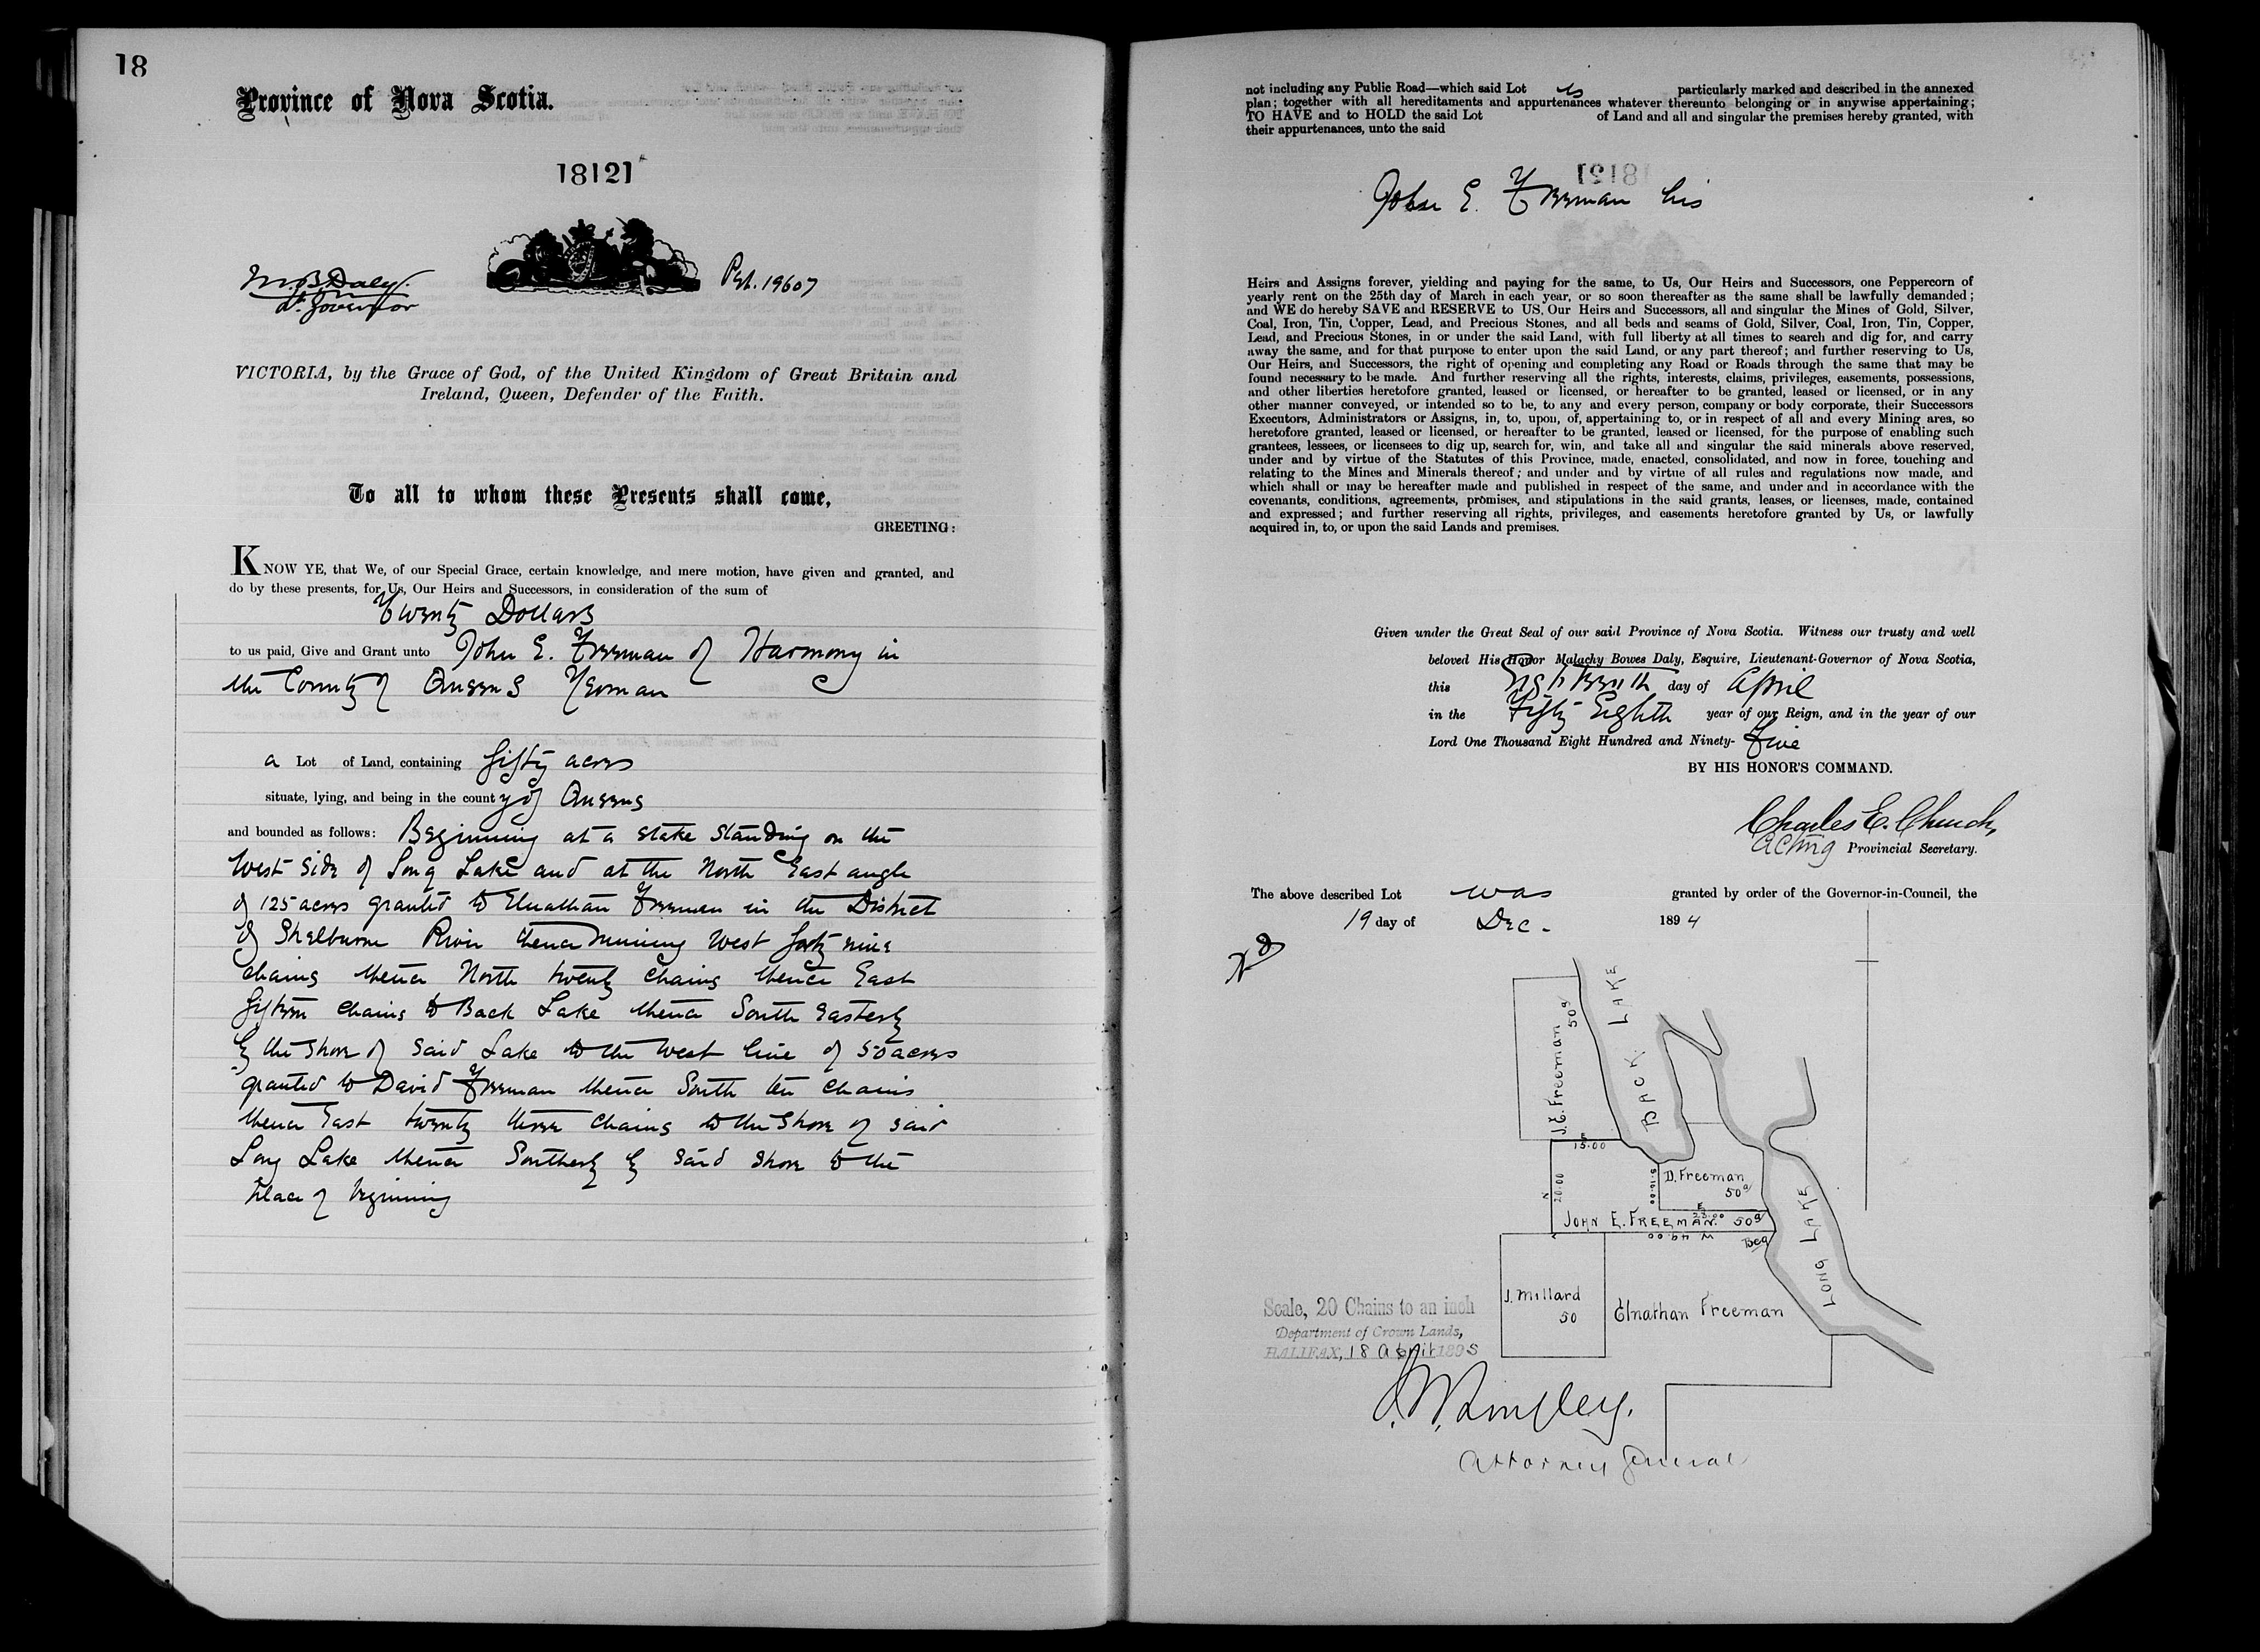 18
Province of Nova Scotia.
18121
M. B. Daly.
Lt. Governor
Pet. 19607
VICTORIA, by the Grace of God, of the United Kingdom of Great Britain and
Ireland, Queen, Defender of the Faith.
To all to whom these Presents shall come,
GREETING:
KNOW YE, that We, of our Special Grace, certain knowledge, and mere motion, have given and granted, and
do by these presents, for Us, Our Heirs and Successors, in consideration of the sum of
Twenty Dollars
to us paid, Give and Grant unto John E. Freeman of Harmony in
the County of Queens Yeoman
a Lot of Land, containing fifty acres
situate, lying, and being in the county of Queens
and bounded as follows: Beginning at a stake standing on the
West side of Long Lake and at the North East angle
of 125 acres granted to Elnathan Freeman in the District
of Shelburne River thence running West forty nine
chains thence North twenty chains thence East
fifteen chains to Back Lake thence South Easterly
by the shore of said Lake to the West line of 50 acres
granted to David Freeman thence South ten chains
thence East twenty three chains to the shore of said
Long Lake thence Southerly by said shore to the
place of beginning
not including any Public Road—which said Lot is particularly marked and described in the annexed
plan; together with all hereditaments and appurtenances whatever thereunto belonging or in anywise appertaining;
TO HAVE and to HOLD the said Lot of Land and all and singular the premises hereby granted, with
their appurtenances, unto the said
John E. Freeman his
Heirs and Assigns forever, yielding and paying for the same, to Us, Our Heirs and Successors, one Peppercorn of
yearly rent on the 25th day of March in each year, or so soon thereafter as the same shall be lawfully demanded;
and WE do hereby SAVE and RESERVE to US, Our Heirs and Successors, all and singular the Mines of Gold, Silver,
Coal, Iron, Tin, Copper, Lead, and Precious Stones, and all beds and seams of Gold, Silver, Coal, Iron, Tin, Copper,
Lead, and Precious Stones, in or under the said Land, with full liberty at all times to search and dig for, and carry
away the same, and for that purpose to enter upon the said Land, or any part thereof; and further reserving to Us,
Our Heirs, and Successors, the right of opening and completing any Road or Roads through the same that may be
found necessary to be made. And further reserving all the rights, interests, claims, privileges, easements, possessions,
and other liberties heretofore granted, leased or licensed, or hereafter to be granted, leased or licensed, or in any
other manner conveyed, or intended so to be, to any and every person, company or body corporate, their Successors
Executors, Administrators or Assigns, in, to, upon, of, appertaining to, or in respect of all and every Mining area, so
heretofore granted, leased or licensed, or hereafter to be granted, leased or licensed, for the purpose of enabling such
grantees, lessees, or licensees to dig up, search for, win, and take all and singular the said minerals above reserved,
under and by virtue of the Statutes of this Province, made, enacted, consolidated, and now in force, touching and
relating to the Mines and Minerals thereof; and under and by virtue of all rules and regulations now made, and
which shall or may be hereafter made and published in respect of the same, and under and in accordance with the
covenants, conditions, agreements, promises, and stipulations in the said grants, leases, or licenses, made, contained
and expressed; and further reserving all rights, privileges, and easements heretofore granted by Us, or lawfully
acquired in, to, or upon the said Lands and premises.
Given under the Great Seal of our said Province of Nova Scotia. Witness our trusty and well
beloved His Honor Malachy Bowes Daly, Esquire, Lieutenant-Governor of Nova Scotia,
this Eighteenth day of April
in the Fifty Eighth year of our Reign, and in the year of our
Lord One Thousand Eight Hundred and Ninety-five
BY HIS HONOR'S COMMAND.
Charles E. Church,
Acting Provincial Secretary.
The above described Lot was granted by order of the Governor-in-Council, the
19 day of Dec. 1894
J. E. Freeman
50a
BACK LAKE
15.00
N 20.00
S 10.00
D. Freeman
50a
E 23.00
JOHN E. FREEMAN. 50a
W 49.00
Beg
LONG LAKE
J. Millard
50
Elnathan Freeman
Scale, 20 Chains to an inch
Department of Crown Lands,
HALIFAX, 18 April 1895
J. W. Longley.
Attorney General